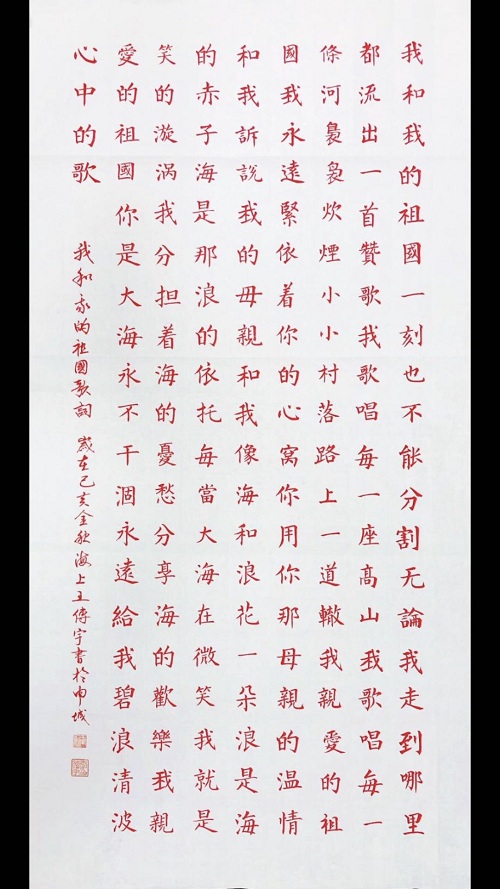 我和我的祖國一刻也不能分割无論我走到哪里
都流出一首贊歌我歌唱每一座高山我歌唱每一
條河裊裊炊煙小小村落路上一道轍我親愛的祖
國我永遠緊依着你的心窩你用你那母親的温情
和我訴說我的母親和我像海和浪花一朵浪是海
的赤子海是那浪的依托每當大海在微笑我就是
笑的漩涡我分担着海的憂愁分享海的歡樂我親
愛的祖國你是大海永不干涸永遠給我碧浪清波
心中的歌
我和我的祖國歌詞 歲在己亥金秋海上王傳宇書於申城